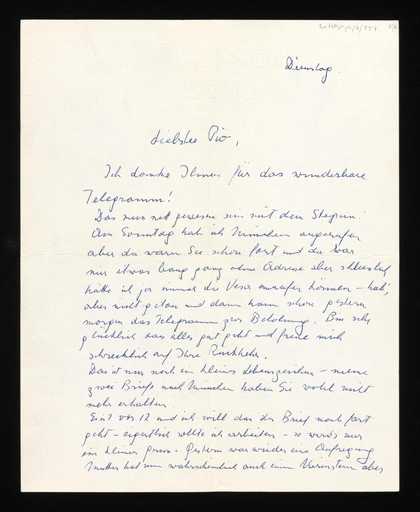 Dienstag.
Liebster Pio,
Ich danke Ihnen für das wunderbare
Telegramm!
Das nun mit dem
Am Sonntag hab ich München angerufen
aber da waren Sie schon fort und da war
mir etwas bang ganz ohne Adresse aber schliesslich
hätte ich ja immer die anrufen können – hab's
aber nicht getan und dann kam schon gestern
morgen das Telegramm zur Belohnung. Bin sehr
glücklich dass alles gut geht und freue mich
schrecklich auf Ihre Rückkehr.
Das ist nur noch ein kleines Lebenszeichen – meine
zwei Briefe nach München haben Sie wohl nicht
mehr erhalten.
Eins vor 12 und ich will dass der Brief noch fort
geht – eigentlich sollte ich arbeiten – so wird's nur
ein kleiner Gruss. Gestern war wieder eine Aufregung
Mutter hat nun wahrscheinlich auch einen aber